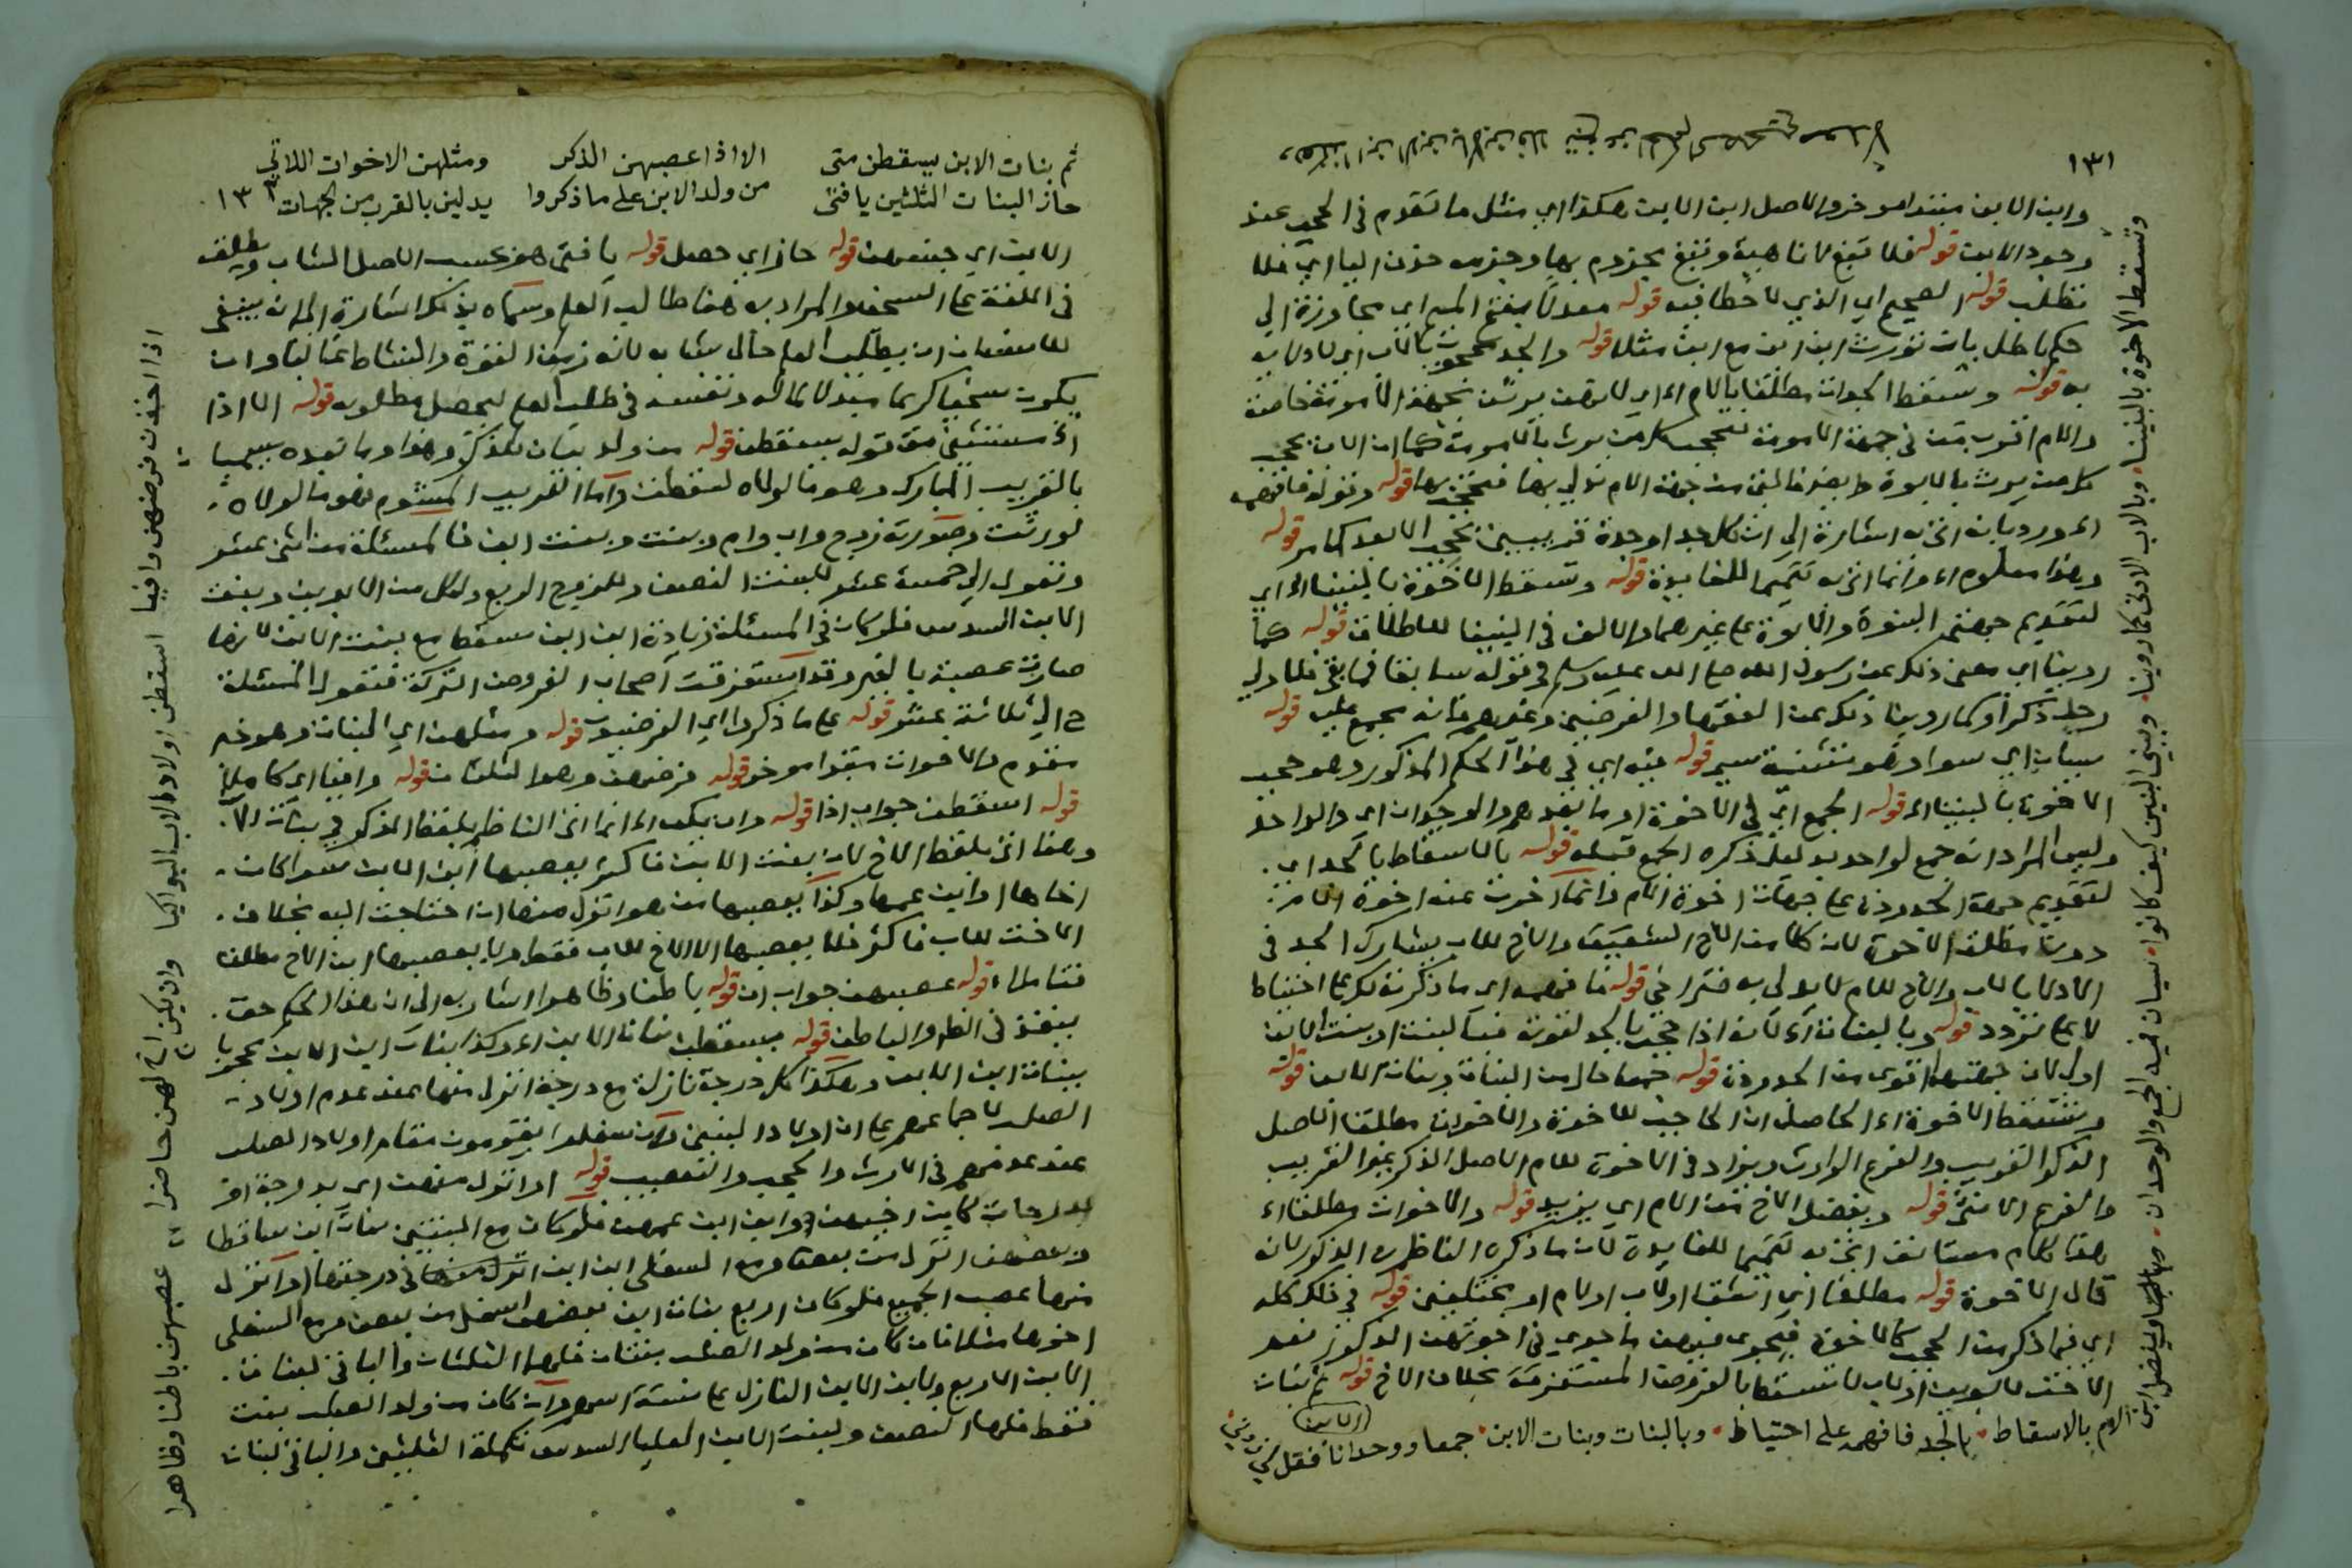 ١٣١
وابن الابن مبتدا موخر والاصل ابن الابن هكذا اي مثل ما تقدم في الحجب عند
وجود الابن قوله فلا تبغ لا ناهية وتبغ مجزوم بها وجزمه حذف اليا اي فلا
تطلب قوله الصحيح اي الذي لا خطا فيه قوله معدلا بفتح الميم اي مجاوزة الي
حكم باطل بان تورث ابن ابن مع ابن مثلا قوله والجد محجوب بالاب اي لادلائه
به قوله وتسقط الجدات مطلقا بالام اي لانهن يرثن بجهة الامومة خاصة
والام اقرب من في جهة الامومة تحجب كل من يرث بالامومة كما ان الاب يحجب
كل من يرث بالابوة وايضا فالتي من جهة الام تدلي بها فتحجب بها قوله وقوله فافهمه
اورد بانه اتى به اشارة الي ان كل جد او جدة قريبين تحجب الابعد كما مر قوله
وهذا معلوم وانما اتى به تتميما للفايدة قوله وتسقط الاخوة بالبنينا اي
لتقديم جهتي البنوة والابوة على غيرهما والالف في البنينا للاطلاق قوله كما
روينا اي معنى ذلك عن رسول الله صلى الله عليه وسلم في قوله سابقا فما بقي فلاولي
رجل ذكر او كما روينا ذلك عن الفقها والفرضيين وغيرهم فانه مجمع عليه قوله
سيان اي سوا وهو تثنية سي قوله فيه اي في هذا الحكم المذكور وهو حجب
الاخوة بالبنينا قوله الجمع اي في الاخوة او ما بعدهم والوحدان اي والواحد
وليس المراد انه جمع لواحد بدليل ذكره الجمع قبله قوله بالاسقاط بالجد اي
لتقديم جهة الجدودة على جهات اخوة الام وانما اخرت عنه اخوة الام
دون مطلق الاخوة لان كلا من الاخ الشقيق والاخ للاب يشارك الجد في
الادلا بالاب والاخ للام لا يدلي به فتراخى قوله فافهمه اي ما ذكرته لك على احتياط
لا على تردد قوله وبالبنات اي لانه اذا حجب بالجد لقوته فبالبنت او بنت الابن
اولى لان جهتهما اقوى من الجدودة قوله جمعا حال من البنات وبنات الابن قوله
وتسقط الاخوة الحاصل ان الحاجب للاخوة والاخوات مطلقا الاصل
الذكر القريب والفرع الوارث ويزاد في الاخوة للام الاصل الذكر غير القريب
والفرع الانثى قوله ويفضل الاخ من الام اي يزيد قوله والاخوات مطلقا
هذا كلام مستانف اتى به تتميما للفايدة لان ما ذكره الناظم في الذكور لانه
قال الاخوة قوله مطلقا اي اشقا او لاب او لام او مختلفين قوله في ذلك كله
اي فيما ذكر من الحجب كالاخوة فيجري فيهن ما جرى في اخوتهن الذكور نعم
الاخت لابوين او لاب لا تسقط بالفروض المستغرقة بخلاف الاخ قوله ثم بنات
الابن
وتسقط الاخوة بالبنينا وبالاب الادنى كما روينا وببني البنين كيف كانوا سيان فيه الجمع والوحدان ويفضل ابن
الام بالاسقاط بالجد فافهمه على احتياط وبالبنات وبنات الابن جمعا ووحدانا فقل لي زدني
ثم بنات الابن يسقطن متى الا اذا عصبهن الذكر ومثلهن الاخوات اللاتي
حاز البنات الثلثين يا فتى من ولد الابن على ما ذكروا يدلين بالقرب من الجهات ١٣٢
الابن اي جنسهن قوله حاز اي حصل قوله يا فتى هو بحسب الاصل الشاب ويطلق
في اللغة على السخي والمراد به هنا طالب العلم وسماه بذلك اشارة الى انه ينبغي
للانسان ان يطلب العلم حال شبابه لانه زمن القوة والنشاط غالبا وان
يكون سخيا كريما يبذل ماله ونفسه في طلب العلم ليحصل مطلوبه قوله الا اذا
مستثنى من قوله يسقطن قوله من ولد بيان للذكر وهذا وما بعده يسمى
بالقريب المبارك وهو ما لولاه لسقطت واما القريب المشوم فهو ما لولاه
لورثت وصورته زوج واب وام وبنت وبنت ابن فالمسئلة من اثني عشر
وتعول الي خمسة عشر للبنت النصف وللزوج الربع ولكل من الابوين وبنت
الابن السدس فلو كان في المسئلة زيادة ابن ابن سقط مع بنت الابن لانها
صارت عصبة بالغير وقد استغرقت اصحاب الفروض التركة فتعول المسئلة
ح الي ثلاثة عشر قوله على ما ذكروا اي الفرضيون قوله ومثلهن اي البنات وهو خبر
مقدم والاخوات مبتدا موخر قوله فرضهن وهو الثلثان قوله وافيا اي كاملا
قوله اسقطن جواب اذا قوله وان يكن انما اتى الناظم بلفظ الذكر في بنات
وهنا اتى بلفظ الاخ لان بنت الابن فاكثر يعصبها ابن الابن سوا كان
اخاها او ابن عمها وكذا يعصبها من هو انزل منها ان احتاجت اليه بخلاف
الاخت للاب فاكثر فلا يعصبها الا الاخ للاب فقط ولا يعصبها ابن الاخ مطلقا
فتامل قوله عصبهن جواب ان قوله باطنا وظاهرا اشار به الى ان هذا الحكم حق
ينفذ في الظاهر والباطن قوله يسقطن بنات الابن وكذا بنات ابن الابن يحجبن
ببنات ابن الابن وهكذا كل درجة نازلة مع درجة انزل منها عند عدم اولاد
الصلب لاجماعهم على ان اولاد البنين وان سفلوا يقومون مقام اولاد الصلب
عند عدمهم في الارث والحجب والتعصيب قوله او انزل منهن اي بدرجة او
بدرجات كابن اخيهن وابن ابن عمهن فلو كان مع البنتين بنات ابن ساقطا
وبعضهن انزل من بعض ومع السفلى ابن ابن في درجتها او انزل
منها عصب الجميع فلو كان اربع بنات ابن بعضهن اسفل من بعض ومع السفلى
اخوها مثلا فان كان من ولد الصلب بنتان فلهما الثلثان والباقي لبنات
الابن الاربع ولابن الابن النازل على ستة اسهم وان كان من ولد الصلب بنت
فقط فلها النصف ولبنت الابن العليا السدس تكملة الثلثين والباقي لبنات
اذا اخذن فرضهن وافيا اسقطن اولاد الاب البواكيا وان يكن اخ لهن حاضرا عصبهن باطنا وظاهرا